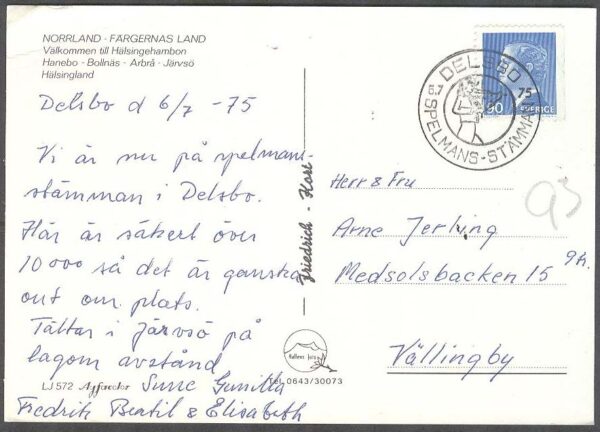 NORRLAND - FÄRGERNAS LAND
Välkommen till Hälsingehambon
Hanebo - Bollnäs - Arbrå - Järvsö
Hälsingland
Delsbo d 6/7 -75
Vi är nu på spelmans-
stämman i Delsbo.
Här är säkert över
10 000 så det är ganska
ont om plats.
Tältar i Järvsö på
lagom avstånd
Sune Gunilla
Fredrik Bertil & Elisabeth
LJ 572 Agfacolor
Friedrich - Kort
Tel. 0643/30073
DELSBO
6.7 75
SPELMANS-STÄMMAN
90 SVERIGE
93
Herr & Fru
Arne Jerling
Medsolsbacken 15 9tr.
Vällingby